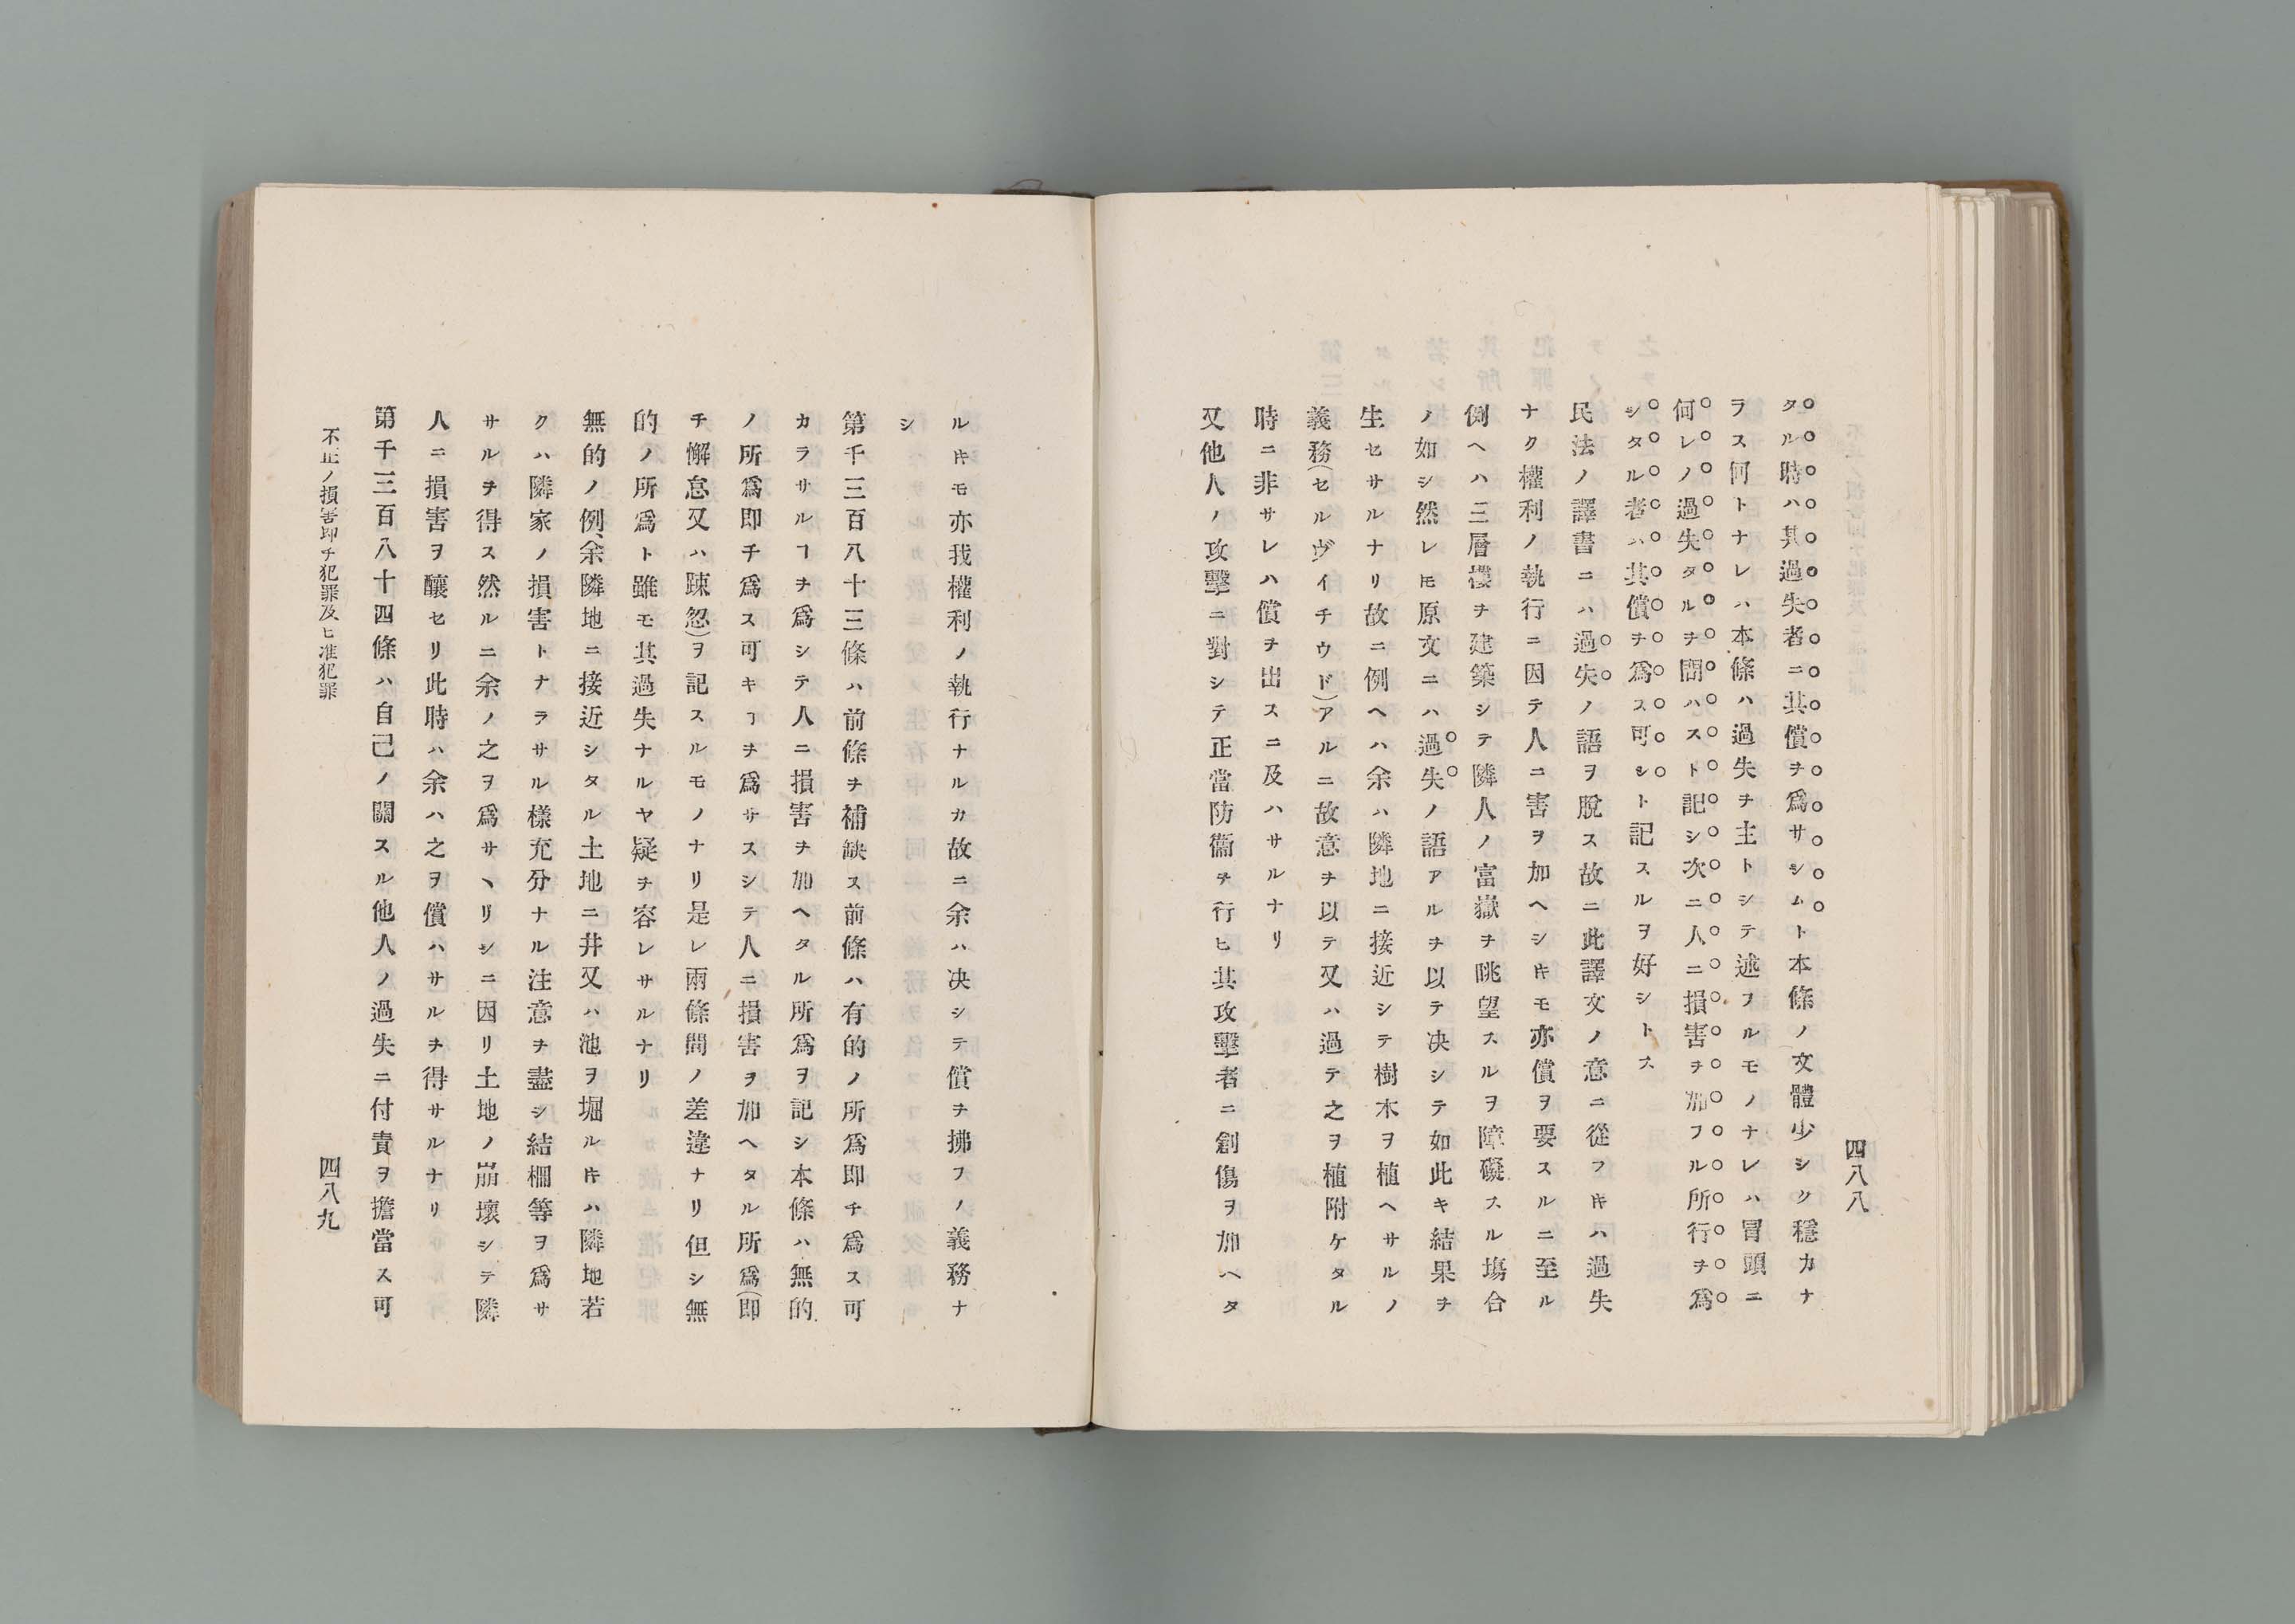 四八八
タル時ハ其過失者ニ其償ヲ爲サシムト本條ノ文體少シク穩カナ
ラス何トナレハ本條ハ過失ヲ主トシテ述フルモノナレハ冒頭ニ
何レノ過失タルヲ問ハスト記シ次ニ人ニ損害ヲ加フル所行ヲ爲
シタル者ハ其償ヲ爲ス可シト記スルヲ好シトス
民法ノ譯書ニハ過失ノ語ヲ脫ス故ニ此譯文ノ意ニ從フ𪜈ハ過失
ナク權利ノ執行ニ因テ人ニ害ヲ加ヘシ𪜈モ亦償ヲ要スルニ至ル
例ヘハ三層樓ヲ建築シテ隣人ノ富嶽ヲ眺望スルヲ障礙スル塲合
ノ如シ然レ𪜈原文ニハ過失ノ語アルヲ以テ决シテ如此キ結果ヲ
生セサルナリ故ニ例ヘハ余ハ隣地ニ接近シテ樹木ヲ植ヘサルノ
義務(セルヴイチウド)アルニ故意ヲ以テ又ハ過テ之ヲ植附ケタル
時ニ非サレハ償ヲ出スニ及ハサルナリ
又他人ノ攻擊ニ對シテ正當防衞ヲ行ヒ其攻擊者ニ創傷ヲ加ヘタ
ル𪜈モ亦我權利ノ執行ナルカ故ニ余ハ决シテ償ヲ拂フノ義務ナ
シ
第千三百八十三條ハ前條ヲ補缺ス前條ハ有的ノ所爲即チ爲ス可
カラサルヿヲ爲シテ人ニ損害ヲ加ヘタル所爲ヲ記シ本條ハ無的
ノ所爲即チ爲ス可キヿヲ爲サスシテ人ニ損害ヲ加ヘタル所爲(即
チ懈怠又ハ踈忽)ヲ記スルモノナリ是レ兩條間ノ差違ナリ但シ無
的ノ所爲ト雖モ其過失ナルヤ疑ヲ容レサルナリ
無的ノ例、余隣地ニ接近シタル土地ニ井又ハ池ヲ堀ル𪜈ハ隣地若
クハ隣家ノ損害トナラサル樣充分ナル注意ヲ盡シ結柵等ヲ爲サ
サルヲ得ス然ルニ余ノ之ヲ爲サヽリシニ因リ土地ノ崩壞シテ隣
人ニ損害ヲ釀セリ此時ハ余ハ之ヲ償ハサルヲ得サルナリ
第千三百八十四條ハ自己ノ關スル他人ノ過失ニ付責ヲ擔當ス可
不正ノ損害即チ犯罪及ヒ准犯罪
四八九